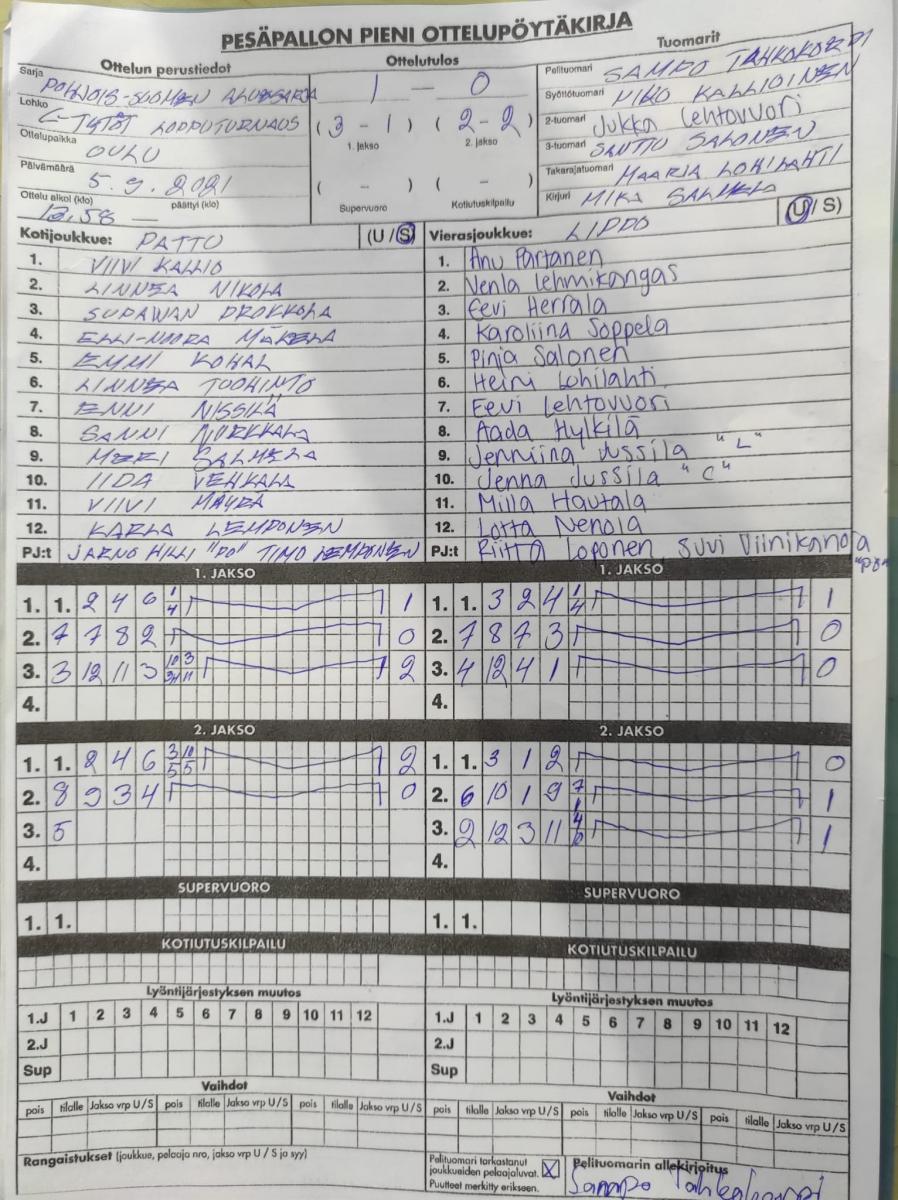 PESÄPALLON PIENI OTTELUPÖYTÄKIRJA
Ottelun perustiedot
Ottelutulos
Tuomarit
Sarja POHJOIS-SUOMEN ALUESARJA
1 — 0
Pelituomari SAMPO TAHKOKORPI
Lohko C-TYTÖT LOPPUTURNAUS
( 3 - 1 ) ( 2 - 2 )
1. jakso 2. jakso
Syöttötuomari NIKO KALLIOINEN
Ottelupaikka OULU
2-tuomari Jukka Lehtovuori
Päivämäärä 5.9.2021
( - ) ( - )
3-tuomari SANTTU SALONEN
Takarajatuomari MAARIA LOHILAHTI
Ottelu alkoi (klo) päättyi (klo)
12.58 —
Supervuoro Kotiutuskilpailu
Kirjuri MIKA SALMELA
Kotijoukkue: PATTO (U / S)
Vierasjoukkue: LIPPO (U / S)
1. VIIVI KALLIO
2. LINNEA NIKOLA
3. SUPAWAN PROKKOLA
4. ELLI-NOORA MÄKELÄ
5. EMMI KOHAL
6. LINNEA TUOHINTO
7. ENNI NISSILÄ
8. SANNI NURKKALA
9. MERI SALMELA
10. IIDA VEHKALA
11. VIIVI MÄYRÄ
12. KARLA LEMPONEN
PJ:t JARNO HILLI "PO" TIMO LEMPONEN
1. Anu Partanen
2. Venla Lehmikangas
3. Eevi Herrala
4. Karoliina Soppela
5. Pinja Salonen
6. Heini Lohilahti
7. Eevi Lehtovuori
8. Aada Hylkilä
9. Jenniina Jussila "L"
10. Jenna Jussila "C"
11. Milla Hautala
12. Lotta Nenola
PJ:t Riitta Loponen, Suvi Viinikanoja "PO"
1. JAKSO
1. 1. 2 4 6 1/4 1
2. 7 7 8 2 0
3. 3 12 11 3 2
4.
1. JAKSO
1. 1. 3 2 4 1/4 1
2. 7 8 7 3 0
3. 4 12 4 1 0
4.
2. JAKSO
1. 1. 2 4 6 3/5 10/5 2
2. 8 9 3 4 0
3. 5
4.
2. JAKSO
1. 1. 3 1 2 0
2. 6 10 1 9 7/1 1
3. 2 12 3 11 1
4.
SUPERVUORO
1. 1.
SUPERVUORO
1. 1.
KOTIUTUSKILPAILU
KOTIUTUSKILPAILU
Lyöntijärjestyksen muutos
1.J 1 2 3 4 5 6 7 8 9 10 11 12
2.J
Sup
Lyöntijärjestyksen muutos
1.J 1 2 3 4 5 6 7 8 9 10 11 12
2.J
Sup
Vaihdot
pois tilalle Jakso vrp U / S pois tilalle Jakso vrp U / S pois tilalle Jakso vrp U / S
Vaihdot
pois tilalle Jakso vrp U / S pois tilalle Jakso vrp U / S pois tilalle Jakso vrp U / S
Rangaistukset (joukkue, pelaaja nro, jakso vrp U / S ja syy)
Pelituomari tarkastanut
joukkueiden pelaajaluvat. X
Puutteet merkitty erikseen.
Pelituomarin allekirjoitus
Sampo Tahkokorpi